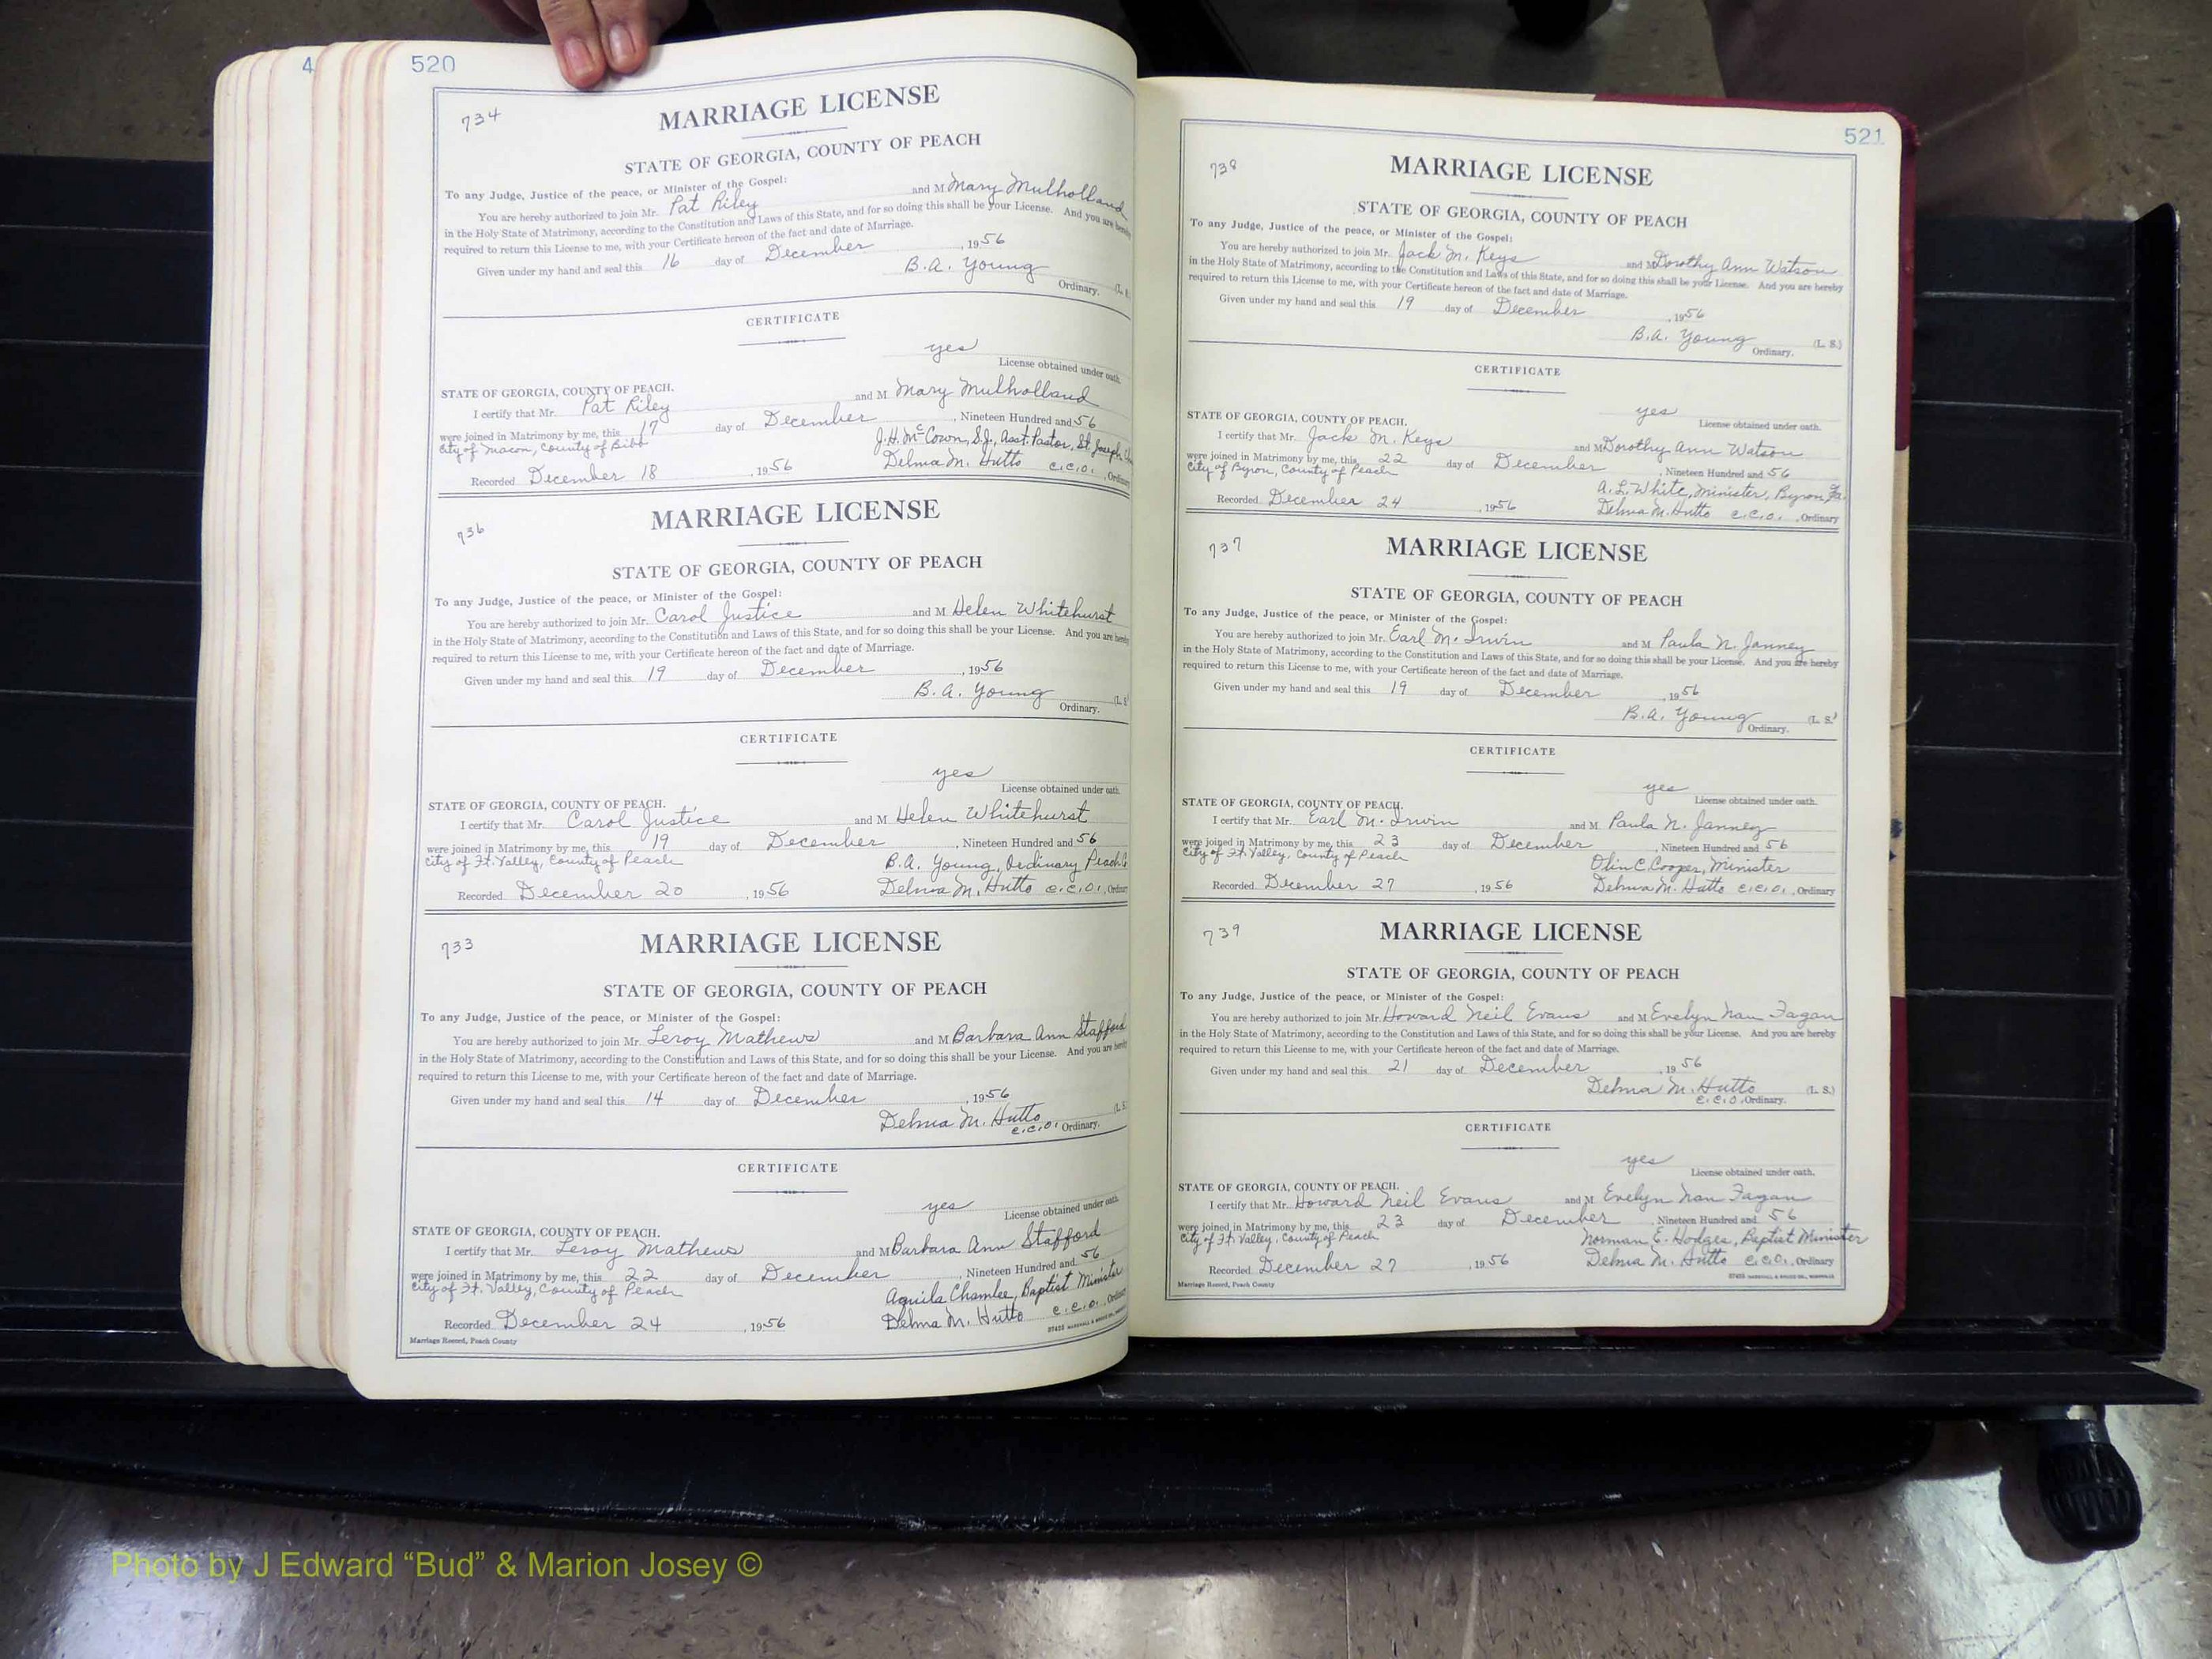 4
520
734
MARRIAGE LICENSE
STATE OF GEORGIA, COUNTY OF PEACH
To any Judge, Justice of the peace, or Minister of the Gospel:
You are hereby authorized to join Mr. Pat Riley and M Mary Mulholland
in the Holy State of Matrimony, according to the Constitution and Laws of this State, and for so doing this shall be your License. And you are hereby
required to return this License to me, with your Certificate hereon of the fact and date of Marriage.
Given under my hand and seal this 16 day of December, 1956
B.A. Young
Ordinary. (L. S.
CERTIFICATE
yes
License obtained under oath.
STATE OF GEORGIA, COUNTY OF PEACH.
I certify that Mr. Pat Riley and M Mary Mulholland
were joined in Matrimony by me, this 17 day of December, Nineteen Hundred and 56
City of Macon, County of Bibb J.H. McCown, S.J., Asst. Pastor, St. Joseph
Recorded December 18, 1956 Delma M. Hutto C.C.O., Ordinary
736
MARRIAGE LICENSE
STATE OF GEORGIA, COUNTY OF PEACH
To any Judge, Justice of the peace, or Minister of the Gospel:
You are hereby authorized to join Mr. Carol Justice and M Helen Whitehurst
in the Holy State of Matrimony, according to the Constitution and Laws of this State, and for so doing this shall be your License. And you are hereby
required to return this License to me, with your Certificate hereon of the fact and date of Marriage.
Given under my hand and seal this 19 day of December, 1956
B.A. Young (L. S
Ordinary.
CERTIFICATE
yes
License obtained under oath.
STATE OF GEORGIA, COUNTY OF PEACH.
I certify that Mr. Carol Justice and M Helen Whitehurst
were joined in Matrimony by me, this 19 day of December, Nineteen Hundred and 56
City of Ft. Valley, County of Peach B.A. Young, Ordinary Peach C
Recorded December 20, 1956 Delma M. Hutto C.C.O., Ordinary
733
MARRIAGE LICENSE
STATE OF GEORGIA, COUNTY OF PEACH
To any Judge, Justice of the peace, or Minister of the Gospel:
You are hereby authorized to join Mr. Leroy Mathews and M Barbara Ann Stafford
in the Holy State of Matrimony, according to the Constitution and Laws of this State, and for so doing this shall be your License. And you are hereby
required to return this License to me, with your Certificate hereon of the fact and date of Marriage.
Given under my hand and seal this 14 day of December, 1956
Delma M. Hutto (L. S.
C.C.O. Ordinary.
CERTIFICATE
yes
License obtained under oath.
STATE OF GEORGIA, COUNTY OF PEACH.
I certify that Mr. Leroy Mathews and M Barbara Ann Stafford
were joined in Matrimony by me, this 22 day of December, Nineteen Hundred and 56
City of Ft. Valley, County of Peach Aquila Chamlee, Baptist Minister
Recorded December 24, 1956 Delma M. Hutto C.C.O., Ordinary
Marriage Record, Peach County
521
738
MARRIAGE LICENSE
STATE OF GEORGIA, COUNTY OF PEACH
To any Judge, Justice of the peace, or Minister of the Gospel:
You are hereby authorized to join Mr. Jack M. Keys and M Dorothy Ann Watson
in the Holy State of Matrimony, according to the Constitution and Laws of this State, and for so doing this shall be your License. And you are hereby
required to return this License to me, with your Certificate hereon of the fact and date of Marriage.
Given under my hand and seal this 19 day of December, 1956
B.A. Young (L. S.)
Ordinary.
CERTIFICATE
yes
License obtained under oath.
STATE OF GEORGIA, COUNTY OF PEACH.
I certify that Mr. Jack M. Keys and M Dorothy Ann Watson
were joined in Matrimony by me, this 22 day of December, Nineteen Hundred and 56
City of Byron, County of Peach A. L. White, Minister, Byron, Ga.
Recorded December 24, 1956 Delma M. Hutto C.C.O., Ordinary
737
MARRIAGE LICENSE
STATE OF GEORGIA, COUNTY OF PEACH
To any Judge, Justice of the peace, or Minister of the Gospel:
You are hereby authorized to join Mr. Earl M. Irwin and M Paula N. Janney
in the Holy State of Matrimony, according to the Constitution and Laws of this State, and for so doing this shall be your License. And you are hereby
required to return this License to me, with your Certificate hereon of the fact and date of Marriage.
Given under my hand and seal this 19 day of December, 1956
B.A. Young (L. S.)
Ordinary.
CERTIFICATE
yes
License obtained under oath.
STATE OF GEORGIA, COUNTY OF PEACH.
I certify that Mr. Earl M. Irwin and M Paula N. Janney
were joined in Matrimony by me, this 23 day of December, Nineteen Hundred and 56
City of Ft. Valley, County of Peach Olin C. Cooper, Minister
Recorded December 27, 1956 Delma M. Hutto C.C.O., Ordinary
739
MARRIAGE LICENSE
STATE OF GEORGIA, COUNTY OF PEACH
To any Judge, Justice of the peace, or Minister of the Gospel:
You are hereby authorized to join Mr. Howard Neil Evans and M Evelyn Nan Fagan
in the Holy State of Matrimony, according to the Constitution and Laws of this State, and for so doing this shall be your License. And you are hereby
required to return this License to me, with your Certificate hereon of the fact and date of Marriage.
Given under my hand and seal this 21 day of December, 1956
Delma M. Hutto (L. S.)
C.C.O. Ordinary.
CERTIFICATE
yes
License obtained under oath.
STATE OF GEORGIA, COUNTY OF PEACH.
I certify that Mr. Howard Neil Evans and M Evelyn Nan Fagan
were joined in Matrimony by me, this 23 day of December, Nineteen Hundred and 56
City of Ft. Valley, County of Peach Norman E. Hodges, Baptist Minister
Recorded December 27, 1956 Delma M. Hutto C.C.O., Ordinary
Marriage Record, Peach County
Photo by J Edward “Bud” & Marion Josey ©